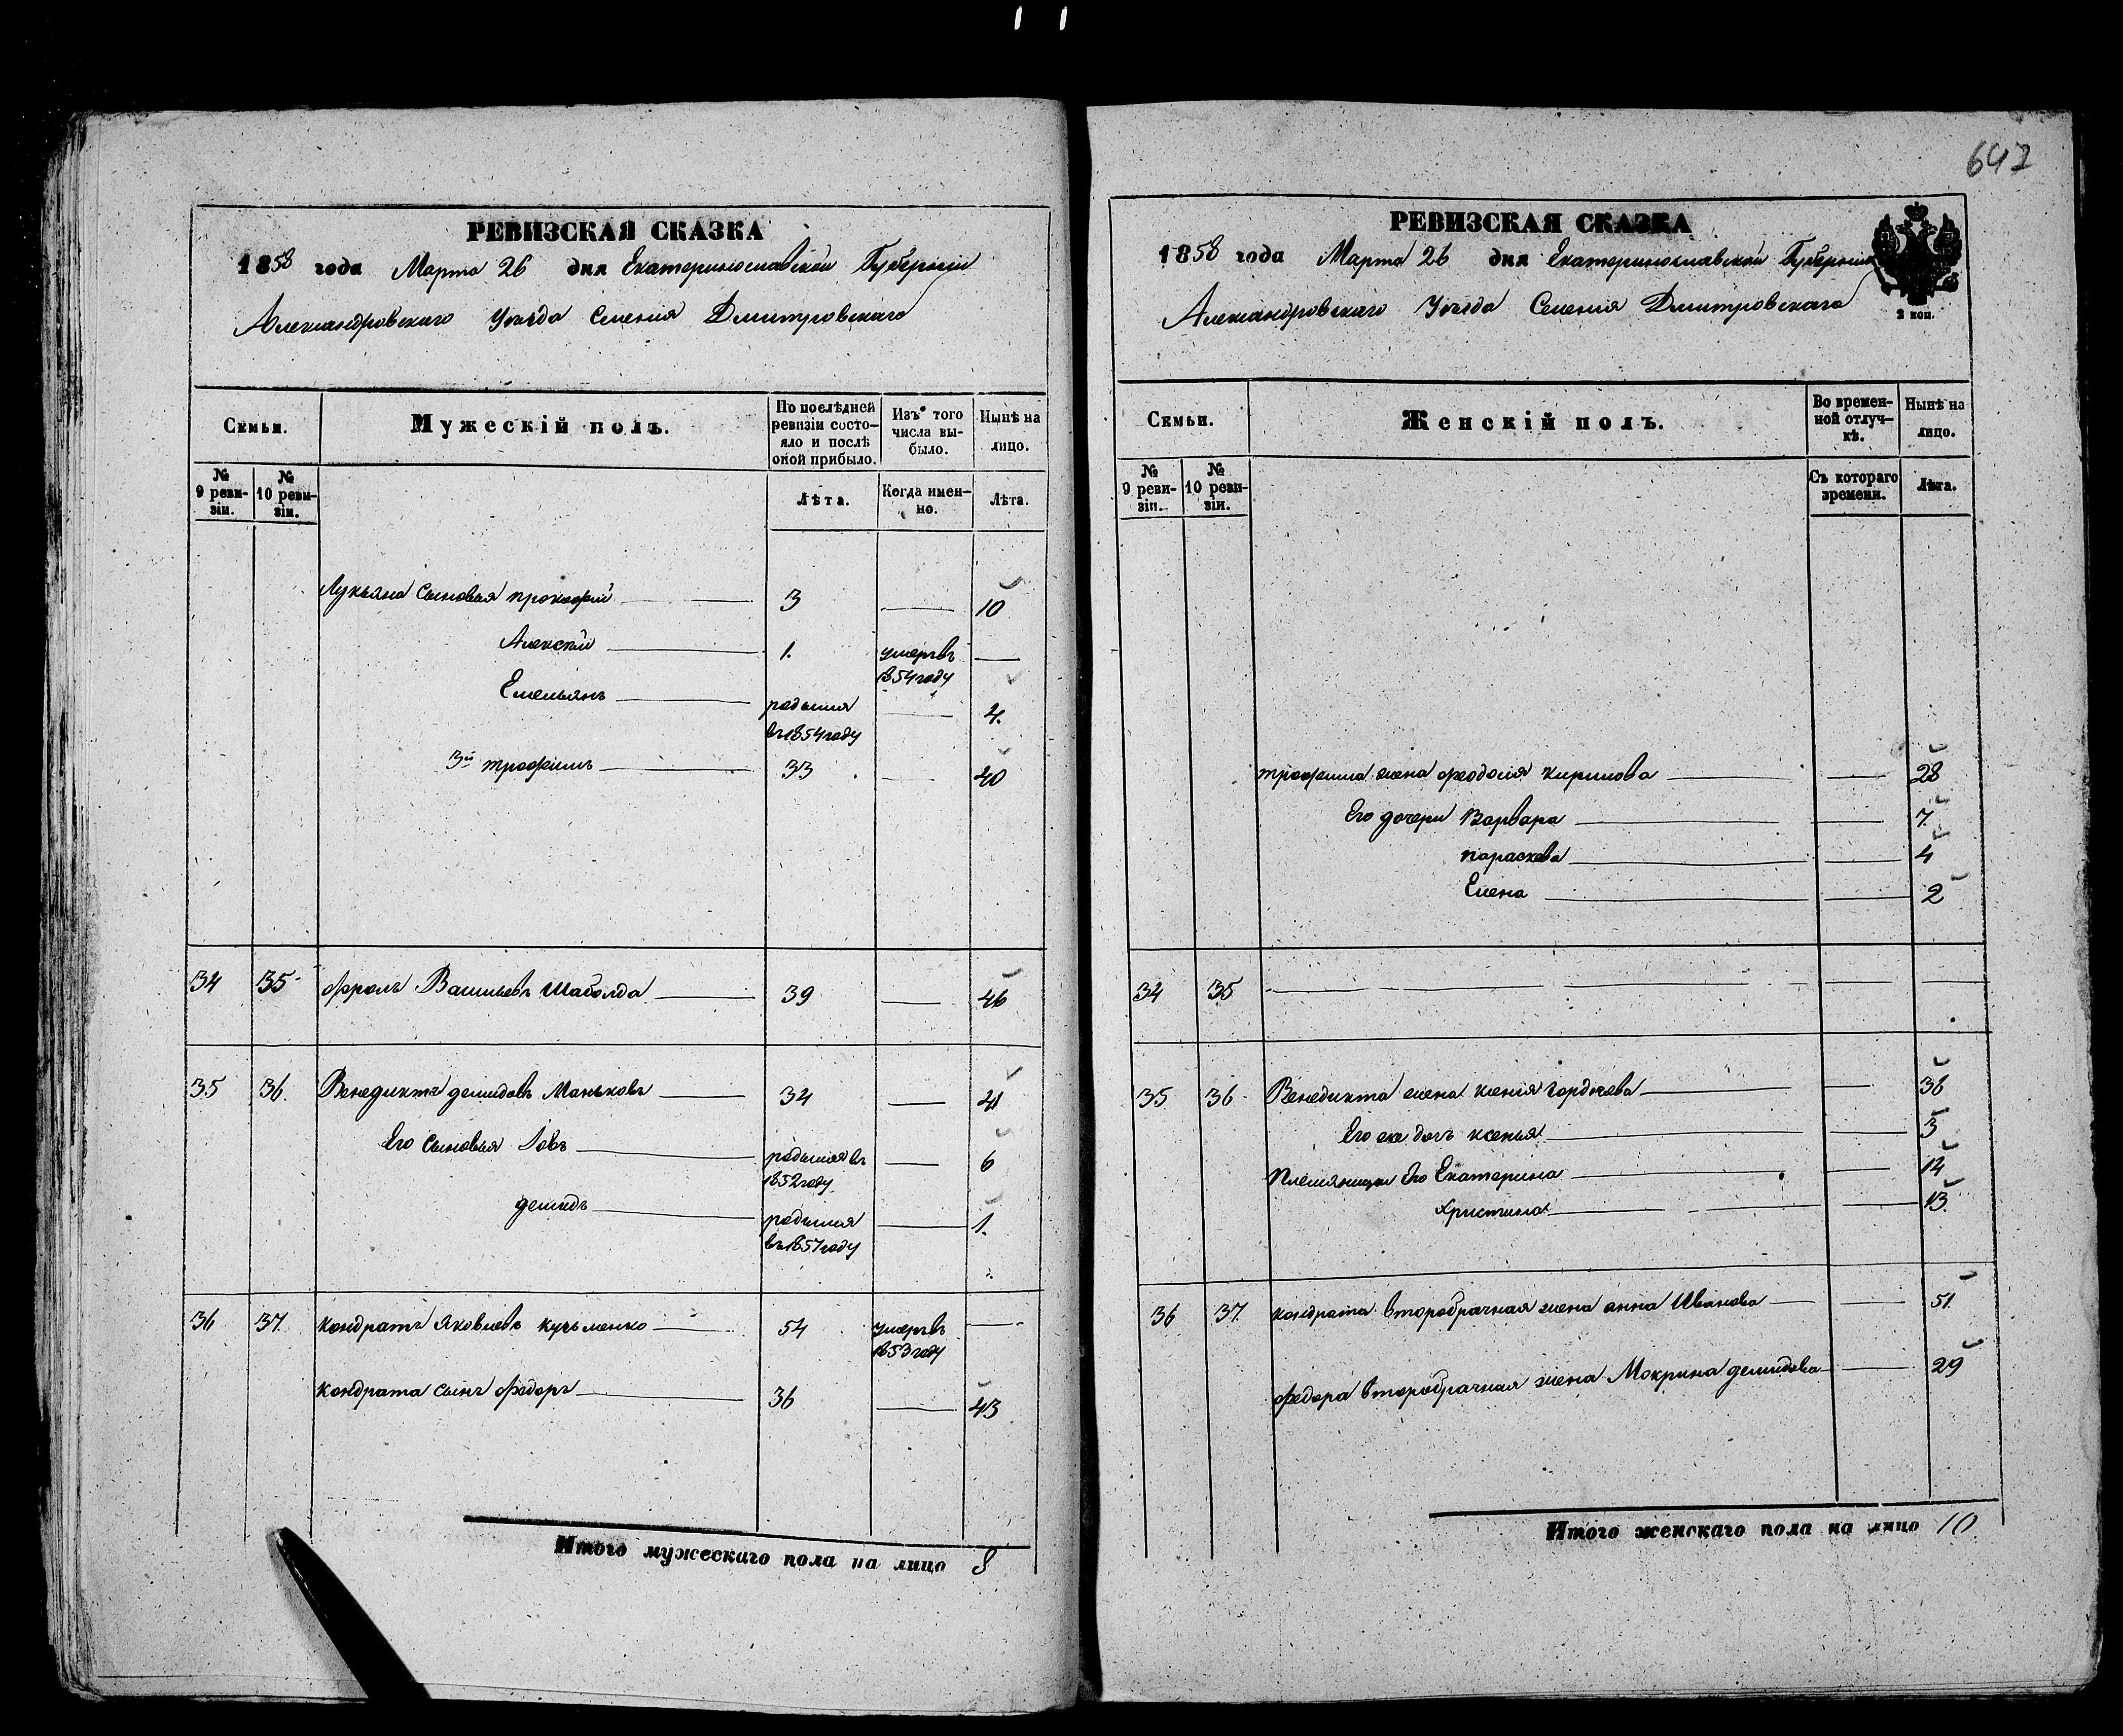 647
РЕВИЗСКАЯ СКАЗКА
1858 года Марта 26 дня Екатеринославской Губернии
Александровского Уѣзда Селения Дмитровскаго
Семьи.
Мужескій полъ.
По послѣдней ревизіи состо-яло и послѣ оной прибыло.
Изъ того числа вы-было.
Нынѣ на лицо.
№ 9 реви-зіи.
№ 10 реви-зіи.
Лѣта.
Когда имен-но.
Лѣта.
Лукьяна сыновья прокофий 3 10
Алексѣй 1. умеръ въ
1854 году
Емельянъ родился 4.
въ 1854 году
3й трофимъ 33 40
34 35 Фролъ Васильевъ Шаболда 39 46
35 36. Венедиктъ демидовъ Маньковъ 34 41
Его сыновья Iовъ родился въ 6
1852 году
демидъ родился 1.
въ 1857 году
36 37. кондратъ Яковлевъ кузьменко 54 умеръ въ
1853 году
кондрата сынъ Федоръ 36 43
Итого мужескаго пола на лицо 8
РЕВИЗСКАЯ СКАЗКА
1858 года Марта 26 дня Екатеринославской Губернии
Александровского Уѣзда Селения Дмитровскаго
2 коп.
Семьи.
Женскій полъ.
Во времен-ной отлуч-кѣ.
Нынѣ на лицо.
№ 9 реви-зіи.
№ 10 реви-зіи.
Съ котораго времени.
Лѣта.
трофима жена феодосия кирилова 28
Его дочери Варвара 7.
параскева 4
Елена 2
34 35
35 36 Венедикта жена ксения гордеева 36
Его же дочь ксенья 3
племянницы Его Екатерина 14
христина 13.
36 37. кондрата второбрачная жена анна Иванова 51.
Федора второбрачная жена Мокрина демидова 29
Итого женскаго пола на лицо 10